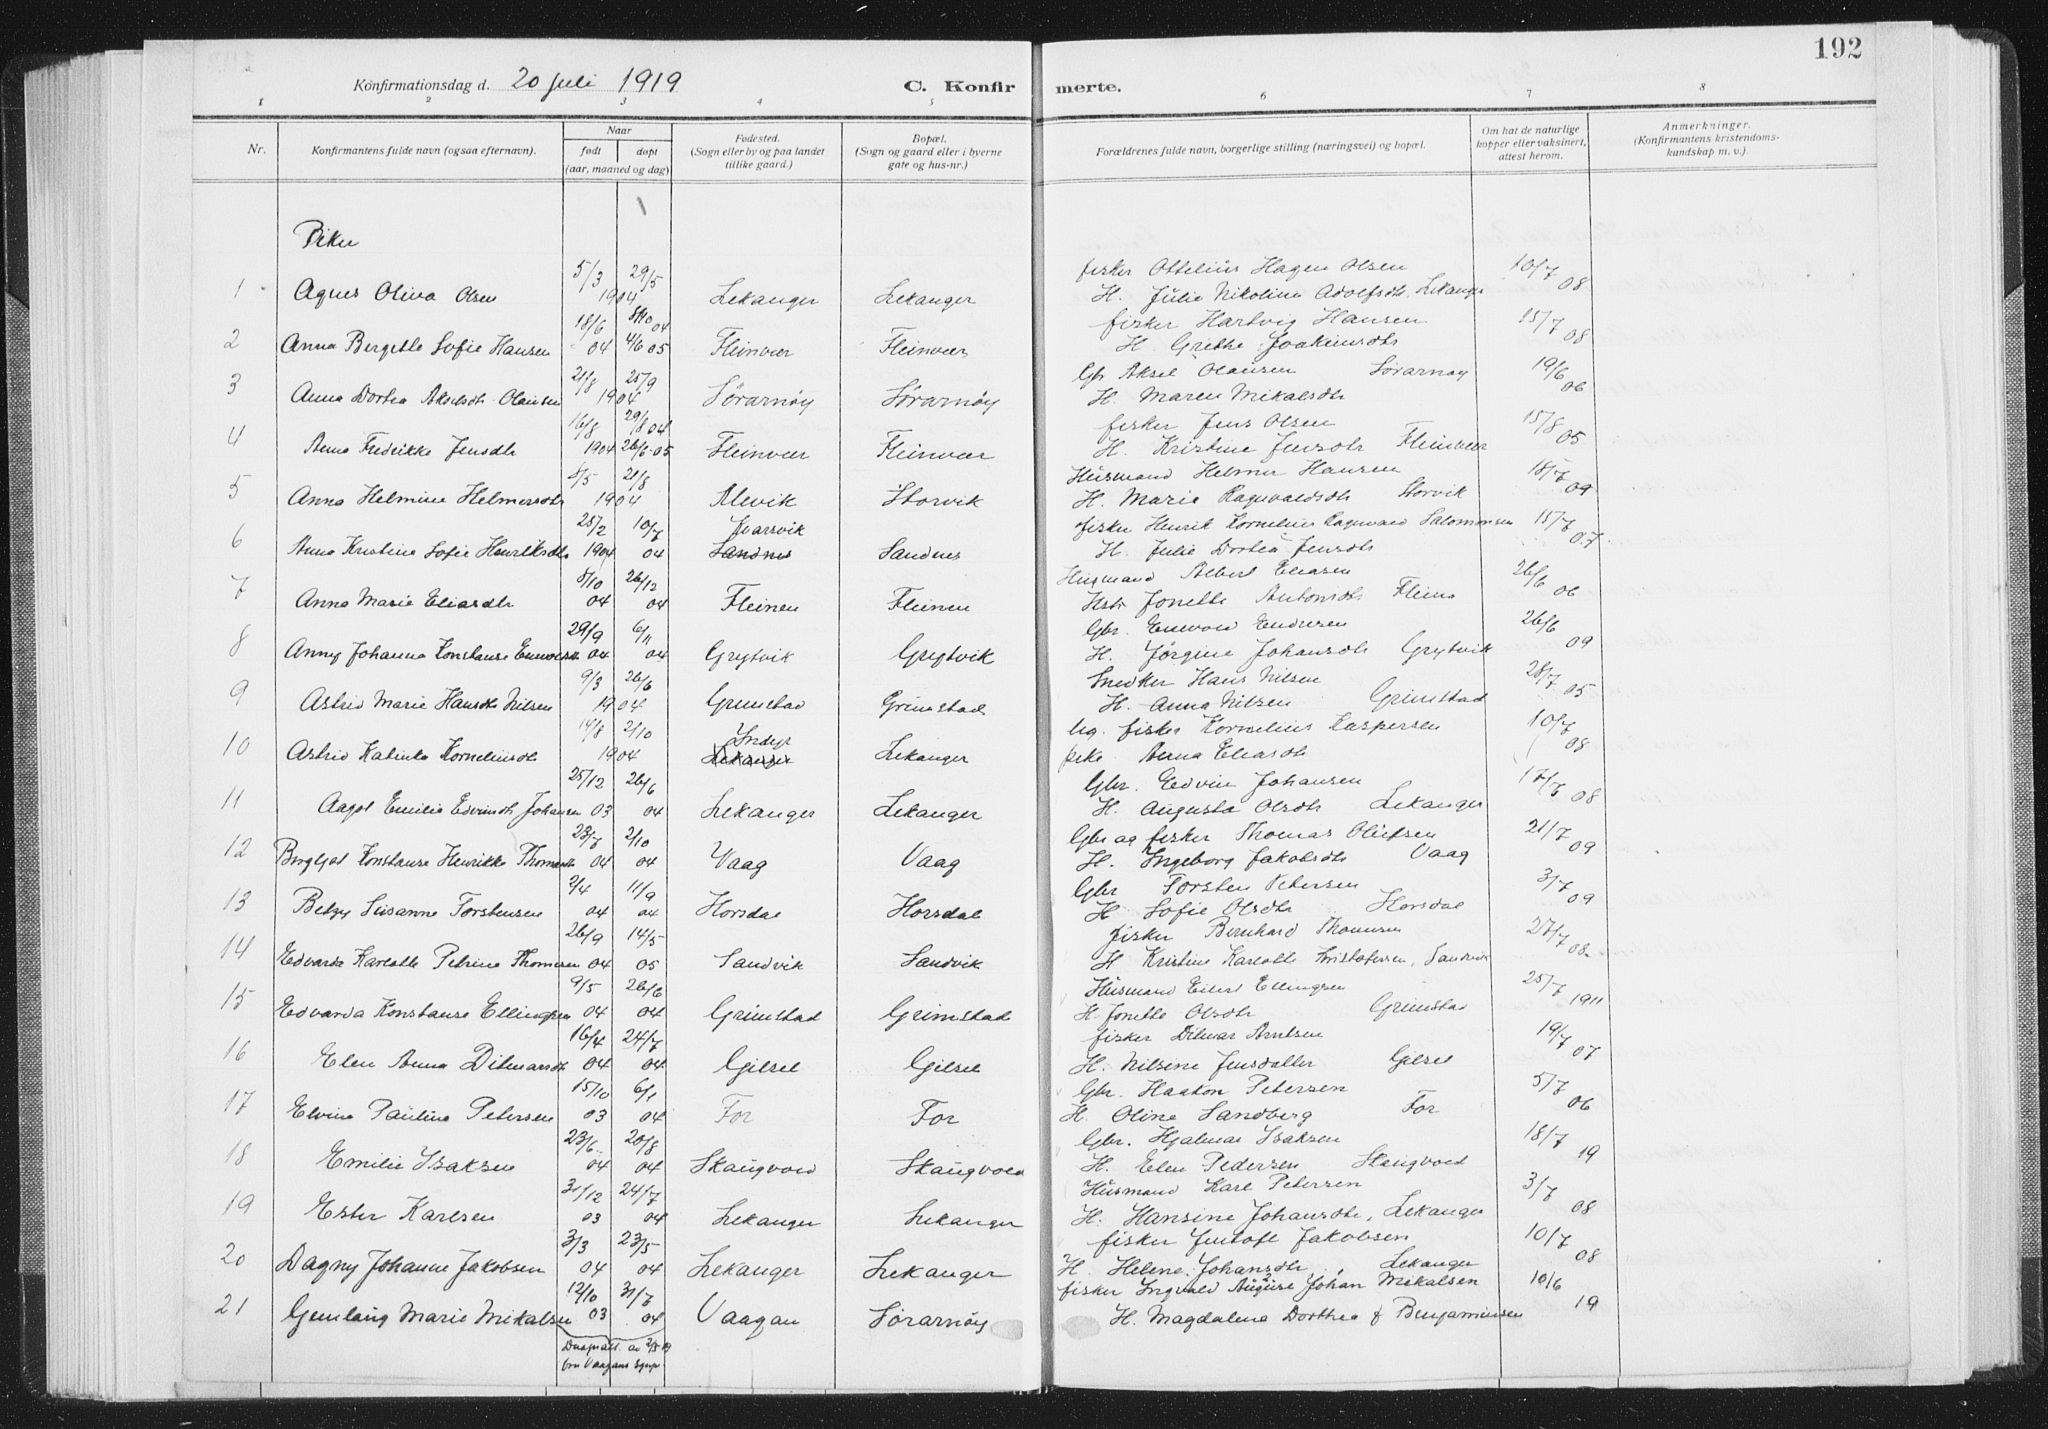 192
Konfirmationsdag d. 20 juli 1919 C. Konfir merte.
1 2 3 4 5 6 7 8
Nr. Konfirmantens fulde navn (ogsaa efternavn). Naar født døpt (aar, maaned og dag) Fødested. (Sogn eller by og paa landet tillike gaard.) Bopæl. (Sogn og gaard eller i byerne gate og hus-nr.) Forældrenes fulde navn, borgerlige stilling (næringsvei) og bopæl. Om hat de naturlige kopper eller vaksinert, attest herom. Anmerkninger. (Konfirmantens kristendomskundskap m. v.).
Piker
5/3 29/5 fisker Ottelius Hagen Olsen 10/7 08
1 Agnes Oliva Olsen 1904 Lekanger Lekanger H. Julie Nikoline Adolfsdtr. Lekanger
18/6 8/10 04 fisker Hartvig Hansen 15/7 08
2 Anna Bergette Sofie Hansen 04 4/6 05 Fleinvær Fleinvær H. Grethe Joakimsdtr
21/8 25/9 Gbr Aksel Olausen Sørarnøy 19/6 06
3 Anna Dortea Akselsdtr. Olausen 1904 Sørarnøy Sørarnøy H. Maren Mikalsdtr
16/8 29/8 04 fisker Jens Olsen 15/8 05
4 Anna Fredrikke Jensdtr 1904 26/6-05 Fleinvær Fleinvær H. Kristine Jensdtr Fleinvær
8/5 21/8 Husmand Helmer Hansen 18/7 09
5 Anna Helmine Helmersdtr 1904 Alevik Storvik H. Marie Ragnvaldsdtr Storvik
25/2 10/7 Kvarsvik fisker Henrik Kornelius Ragnvald Salomonsen 15/7 07
6 Anna Kristine Sofie Henriksdtr 1904 04 Sandnes Sandnes H. Julie Dortea Jensdtr
8/10 26/12 Husmand Albert Eliasen 26/6 06
7 Anna Marie Eliasdtr 04 04 Fleinen Fleinen Hstr Jonette Antonsdtr Fleina
29/9 6/11 Gbr. Enevold Endresen 26/6 09
8 Anny Johanna Konstanse Enevoldsdtr 04 04 Grytvik Grytvik H. Jørgine Johansdtr Grytvik
9/3 26/6 Snedker Hans Nilsen 28/7 05
9 Astrid Marie Hansdtr Nilsen 1904 Grimstad Grimstad H. Anna Nilsen Grimstad
14/8 2/10 Indyr ug. fisker Kornelius Kaspersen 10/7 08
10 Astrid Katinka Korneliusdtr 1904 Lekanger Lekanger pike Anna Eliasdtr
25/12 26/6 Gbr. Edvin Johansen 17/7 08
11 Aagot Emilie Edvinsdtr Johansen 03 04 Lekanger Lekanger H. Augusta Olsdtr Lekanger
23/7 2/10 Gbr og fisker Thomas Olufsen 21/7 09
12 Bergljot Konstanse Henrikke Thomasdtr 04 04 Vaag Vaag H. Ingeborg Jakobsdtr Vaag
2/4 11/9 Gbr Torsten Petersen 3/7 09
13 Betzy Susanne Torstensen 04 04 Horsdal Horsdal H Sofie Olsdtr Horsdal
26/9 14/5 fisker Bernhard Thomesen 27/7 08
14 Edvarda Karlotte Petrine Thomesen 04 05 Sandvik Sandvik H Kristine Karlotte Kristofersen, Sandvik
9/5 26/6 Husmand Eilert Ellingsen 25/7 1911
15 Edvarda Konstanse Ellingsen 04 04 Grimstad Grimstad H. Jonette Olsdtr Grimstad
16/4 24/7 fisker Ditmar Arntsen 19/7 07
16 Elen Anna Ditmarsdtr 04 04 Gilset Gilset H. Nilsine Jensdatter Gilset
15/10 6/1 Gbr. Haakon Petersen 5/7 06
17 Elvine Pauline Petersen 03 04 For For H. Oline Sandberg For
23/6 20/8 Gbr. Hjalmar Isaksen 18/7 19
18 Emilie Isaksen 04 04 Skaugvold Skaugvold H. Elen Pedersen Skaugvold
31/12 24/7 Husmand Karl Petersen 3/7 08
19 Ester Karlsen 03 04 Lekanger Lekanger H. Hansine Johansdtr, Lekanger
3/3 23/5 fisker Jentoft Jakobsen 10/7 08
20 Dagny Johanne Jakobsen 04 04 Lekanger Lekanger H. Helene Johansdtr, Lekanger
12/10 31/7 fisker Ingvald August Johan Mikalsen 10/6 19
21 Gunlaug Marie Mikalsen 03 04 Vaagan Sørarnøy H. Magdalena Dorthea f Benjaminsen
Daapsatt. av 2/5 19
fra Vaagans sgnp.